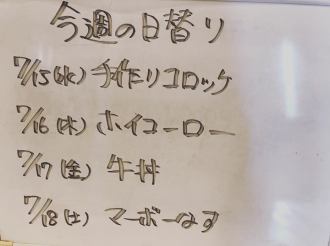 今週の日替り
7/15(水)手作りコロッケ
7/16(木)ホイコーロー
7/17(金)牛丼
7/18(土)マーボーなす